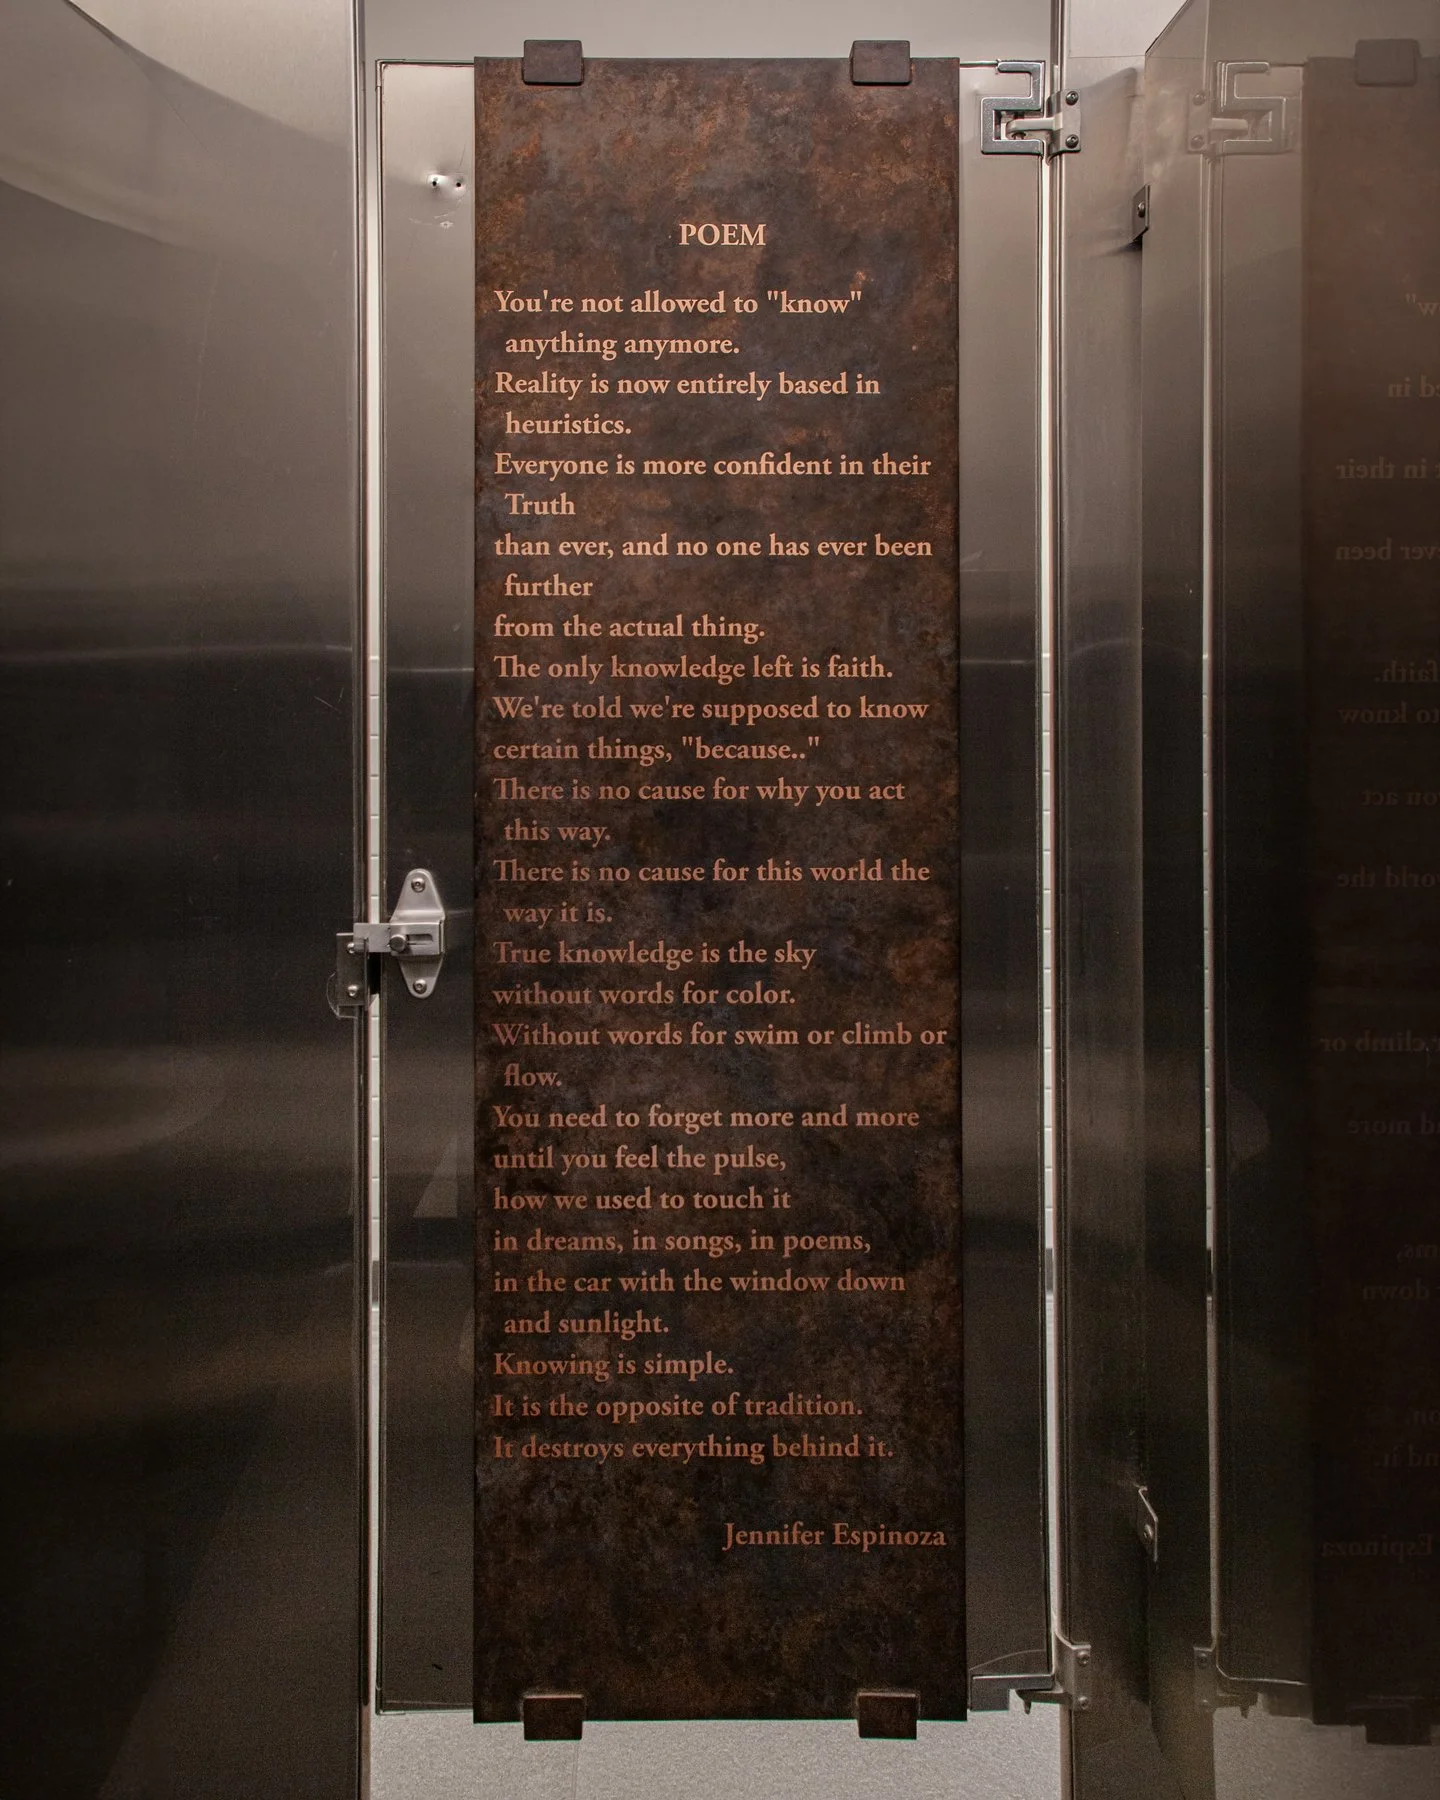 POEM
You're not allowed to "know"
anything anymore.
Reality is now entirely based in
heuristics.
Everyone is more confident in their
Truth
than ever, and no one has ever been
further
from the actual thing.
The only knowledge left is faith.
We're told we're supposed to know
certain things, "because.."
There is no cause for why you act
this way.
There is no cause for this world the
way it is.
True knowledge is the sky
without words for color.
Without words for swim or climb or
flow.
You need to forget more and more
until you feel the pulse,
how we used to touch it
in dreams, in songs, in poems,
in the car with the window down
and sunlight.
Knowing is simple.
It is the opposite of tradition.
It destroys everything behind it.
Jennifer Espinoza